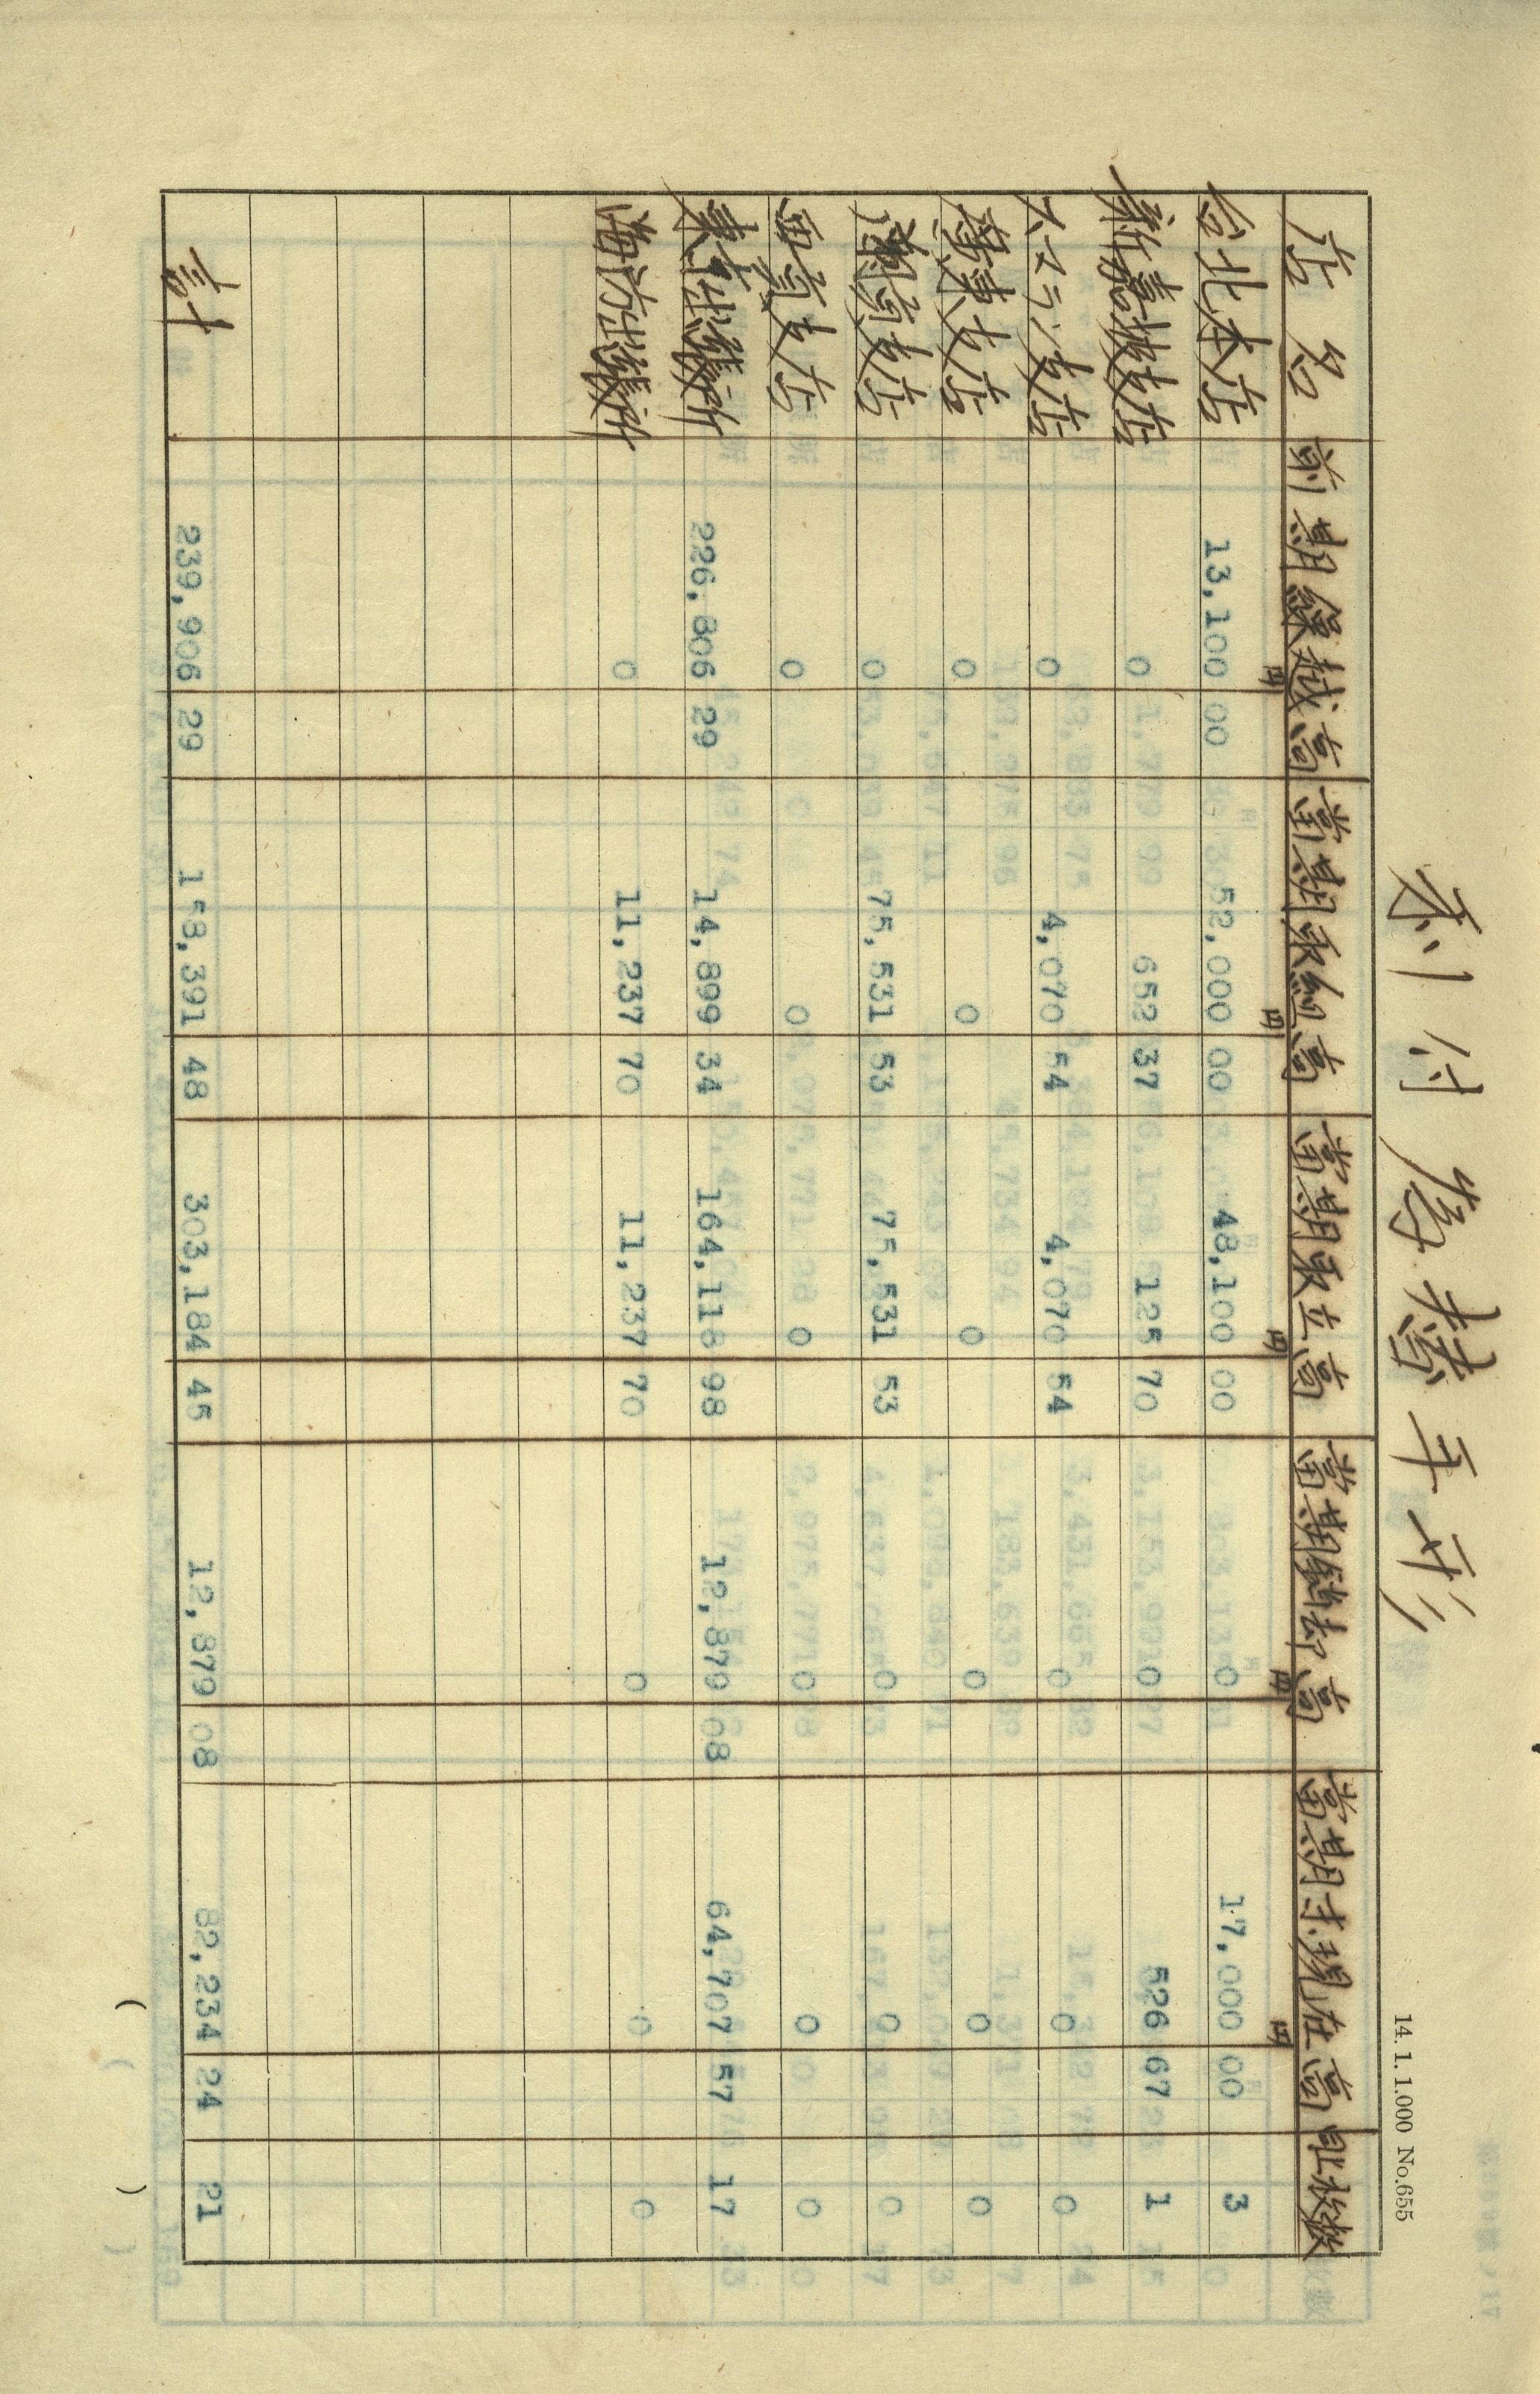 利付為替手形
14. 1. 1.000 No.655
店名 前期繰越高 当期取組高 当期取立高 当期銷却高 当期末現在高 仝上枚数
円 円 円 円 円
台北本店 13,100 00 52,000 00 48,100 00 0 17,000 00 3
新嘉坡支店 0 652 37 125 70 0 526 67 1
スマラン支店 0 4,070 54 4,070 54 0 0 0
広東支店 0 0 0 0 0 0
75,531 53 75,531 53 0 0 0
支店 0 0 0 0 0 0
東京出張所 226,806 29 14,899 34 164,118 98 12,879 08 64,707 57 17
海防出張所 0 11,237 70 11,237 70 0 0 0
計 239,906 29 158,391 48 303,184 45 12,879 08 82,234 24 21
( )